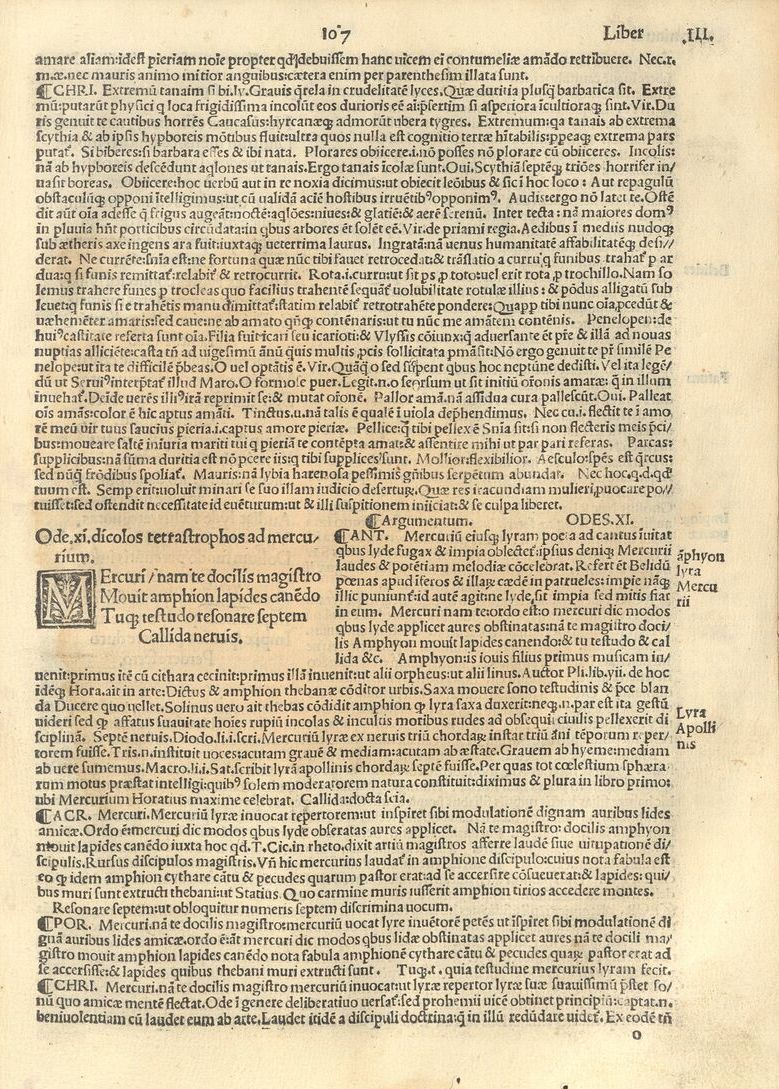 107 Liber .III.
amare aliam:idest pieriam noīe propter qď debuissem hanc uicem ei contumeliæ amādo retribuere. Nec.r.
m.æ.nec mauris animo mitior anguibus:cætera enim per parenthesim illata sunt.
¶CHRI. Extremū tanaim si bi.ly. Grauis q̄rela in crudelitatē lyces. Quæ duritia plusq̄ barbarica sit. Extre
mū:putarūt physici q loca frigidissima incolūt eos durioris eē si asperiora īcultioraq; sint. Vir. Du
ris genuit te cautibus horrēs Caucasus:hyrcanæq; admorūt ubera tygres. Extremum:qa tanais ab extrema
scythia & ab ipsis hypboreis mōtibus fluit:ultra quos nulla est cognitio terræ extrema pars
putat̄. Si biberes:si barbara esses & ibi nata. Plorares obiicere.i.nō posses nō plorare cū obiiceres. Incolis:
nā ab hypboreis descēdunt aqlones ut tanais. Ergo tanais īcolæ sunt. Oui. Scythiā septēq; triōes horrifer in/
uasit boreas. Obiicere:hoc uerbū aut in re noxia dicimus:ut obiecit leōibus & sic ī hoc loco: Aut repagulū
obstaculūq; opponi ītelligimus:ut cū ualidā aciē hostibus opponimus. Audis:ergo nō latet te. Ostē
dit aūt oīa adesse q̄ frigus augeāt:noctē:aqlōes:niues:& glatiē:& aerē serenū. Inter tecta: nā maiores domꝰ
in pluuia hn̄t porticibus circūdata:in qbus arbores eē solēt Vir.de priami regia. Aedibus ī mediis nudoq;
sub ætheris axe ingens ara fuit:iuxtaq; ueterrima laurus. Ingratā:nā uenus humanitatē affabilitatēq; desi//
derat. Ne currēte:snīa est:ne fortuna quæ nūc tibi fauet retrocedat:& trāslatio a curru q funibus trahat̄
dua:q si funis remittat̄:relabit̄ & retrocurrit. Rota.i.curru:ut sit ps p toto:uel erit rota p trochillo. Nam so
lemus trahere funes p trocleas quo facilius trahentē sequat̄ uolubilitate rotulæ illius: & pōdus alligatū sub
leuet:q funis si e trahētis manu dimittat̄:statim relabit̄ retrotrahēte pondere: tibi nunc oīa pcedūt &
uæhemēter amaris:sed caue:ne ab amato contēnaris:ut tu nūc me amātem contēnis. Penelopen:de
huiꝰ castitate reserta sunt oīa. Filia fuit icari seu icarioti:& Vlyssis cōiunx:q aduersante & illā ad nouas
nuptias alliciēte:casta tn̄ ad uigesimū ānū quis multis pcis sollicitata Nō ergo genuit te pr̄ similē Pe
nelope:ut ita te difficilē p̄beas. O uel optātis ē. Vir. Quāq̄ o sed supent qbus hoc neptune dedisti. Vel ita legē/
dū ut Seruiꝰ interp̄tat̄ illud Maro. O formose puer. Legit.n.o seorsum ut sit initiū or̄onis amaræ: q̄ in illum
inuehat̄. Deīde uerēs illiꝰ irā reprimit se:& mutat or̄onē. Pallor amā.nā assidua cura pallescūt. Oui. Palleat
oīs amās:color ē hic aptus amāti. Tinctus.u.nā talis ē qualē ī uiola dep̄hendimus. Nec cu.i.flectit te ī amo
rē meū uir tuus saucius pieria.i.captus amore pieriæ. Pellice:q tibi pellex ē Snīa sit:si non flecteris meis p̄ci/
bus:moueare saltē iniuria mariti tui q pieriā te contēpta amat:& assentire mihi ut par pari referas. Parcas:
supplicibus:nā sūma duritia est nō pcere iis:q tibi supplices sunt. Mollior:flexibilior. Aesculo:spēs est q̄rcus:
sed nūq̄ frōdibus spoliat̄. Mauris:nā lybia harenosa pessimis gn̄ibus serpētum abundat. Nec hoc.q.d.qď
tuum est. Semp erit:uoluit minari se suo illam iudicio desertuꝝ. Quæ res iracundiam mulieri puocare po//
tuisset:sed ostendit necessitate id euēturum:ut & illi suspitionem iniiciat:& se culpa liberet.
¶Argumentum. ODES.XI.
Ode.xi.dicolos tetrastrophos ad mercu/
rium.
MErcuri / nam te docilis magistro
Mouit amphion lapides canēdo
Tuq; testudo resonare septem
Callida neruis.
¶ANT. Mercuriū eiusq; lyram poeta ad cantus īuitat
qbus lyde fugax & impia oblectet̄:ipsius deniq; Mercurii
laudes & potētiam melodiæ cōcelebrat. Refert & Belidū
pœnas apud īferos & illaꝝ cædē in patrueles:impie nāq;
illic puniunt̄:id autē agit:ne lyde sit impia sed mitis fiat
in eum. Mercuri nam te:ordo est:o mercuri dic modos
qbus lyde applicet aures obstinatas:nā te magistro doci/
lis Amphyon mouit lapides canendo:& tu testudo & cal
lida &c. Amphyon:is iouis filius primus musicam in/
uenit:primus itē cū cithara cecinit:primus illā inuenit:ut alii orpheus:ut alii linus. Auctor Pli.lib.vii.de hoc
idēq; Hora.ait in arte:Dictus & amphion thebanæ cōditor urbis. Saxa mouere sono testudinis & p̄ce blan
da Ducere quo uellet. Solinus uero ait thebas cōdidit amphion qͦ lyra saxa duxerit:neq;.n.par est ita gestū
uideri sed qͦ affatus suauitate hoīes rupiū incolas & incultis moribus rudes ad obsequii ciuilis pellexerit di
sciplinā. Septē neruis. Diodo.li.i.scri. Mercuriū lyræ ex neruis triū chordaꝝ instar triū āni tēporum reper/
torem fuisse. Tris.n.instituit uoces:acutam grauē & mediam:acutam ab æstate. Grauem ab hyeme:mediam
ab uere sumemus. Macro.li.i.Sat.scribit lyrā apollinis chordaꝝ septē fuisse. Per quas tot cœlestium sphæra
rum motus præstat intelligi:quibꝰ solem moderatorem natura constituit:diximus & plura in libro primo:
ubi Mercurium Horatius maxime celebrat. Callida:docta scia.
¶ACR. Mercuri. Mercuriū lyræ inuocat repertorem:ut inspiret sibi modulationē dignam auribus lides
amicæ. Ordo ē:mercuri dic modos qbus lyde obseratas aures applicet. Nā te magistro: docilis amphyon
mouit lapides canēdo iuxta hoc qd. T.Cic.in rheto.dixit artiū magistros afferre laudē siue uitupationē di/
scipulis. Rursus discipulos magistris. Vn̄ hic mercurius laudat̄ in amphione discipulo:cuius nota fabula est
eo qͦ idem amphion cythare cātu & pecudes quarum pastor erat:ad se accersire cōsueuerat:& lapides: qui/
bus muri sunt extructi thebani:ut Statius. Quo carmine muris iusserit amphion tirios accedere montes.
Resonare septem:ut obloquitur numeris septem discrimina uocum.
¶POR. Mercuri.nā te docilis magistro:mercuriū uocat lyre inuētorē petēs ut īspiret sibi modulationē di
gnā auribus lides amicæ.ordo ē:āt mercuri dic modos qbus lidæ obstinatas applicet aures nā te docili ma/
gistro mouit amphion lapides canēdo nota fabula amphionē cythare cātu & pecudes quaꝝ pastor erat ad
se accersisse:& lapides quibus thebani muri extructi sunt. Tuq;.t.quia testudine mercurius lyram fecit.
¶CHRI. Mercuri.nā te docilis magistro mercuriū inuocat:ut lyræ repertor lyræ suæ suauissimū p̄stet so/
nū quo amicæ mentē flectat. Ode ī genere deliberatiuo uersat̄:sed prohemii uicē obtinet principiū:captat.n.
beniuolentiam cū laudet eum ab arte. Laudet itidē a discipuli doctrina:q̄ in illū redūdare uidet̄. Ex eodē tn̄
āphyon
lyra
Mercu
rii
Lyra
Apolli
nis
o